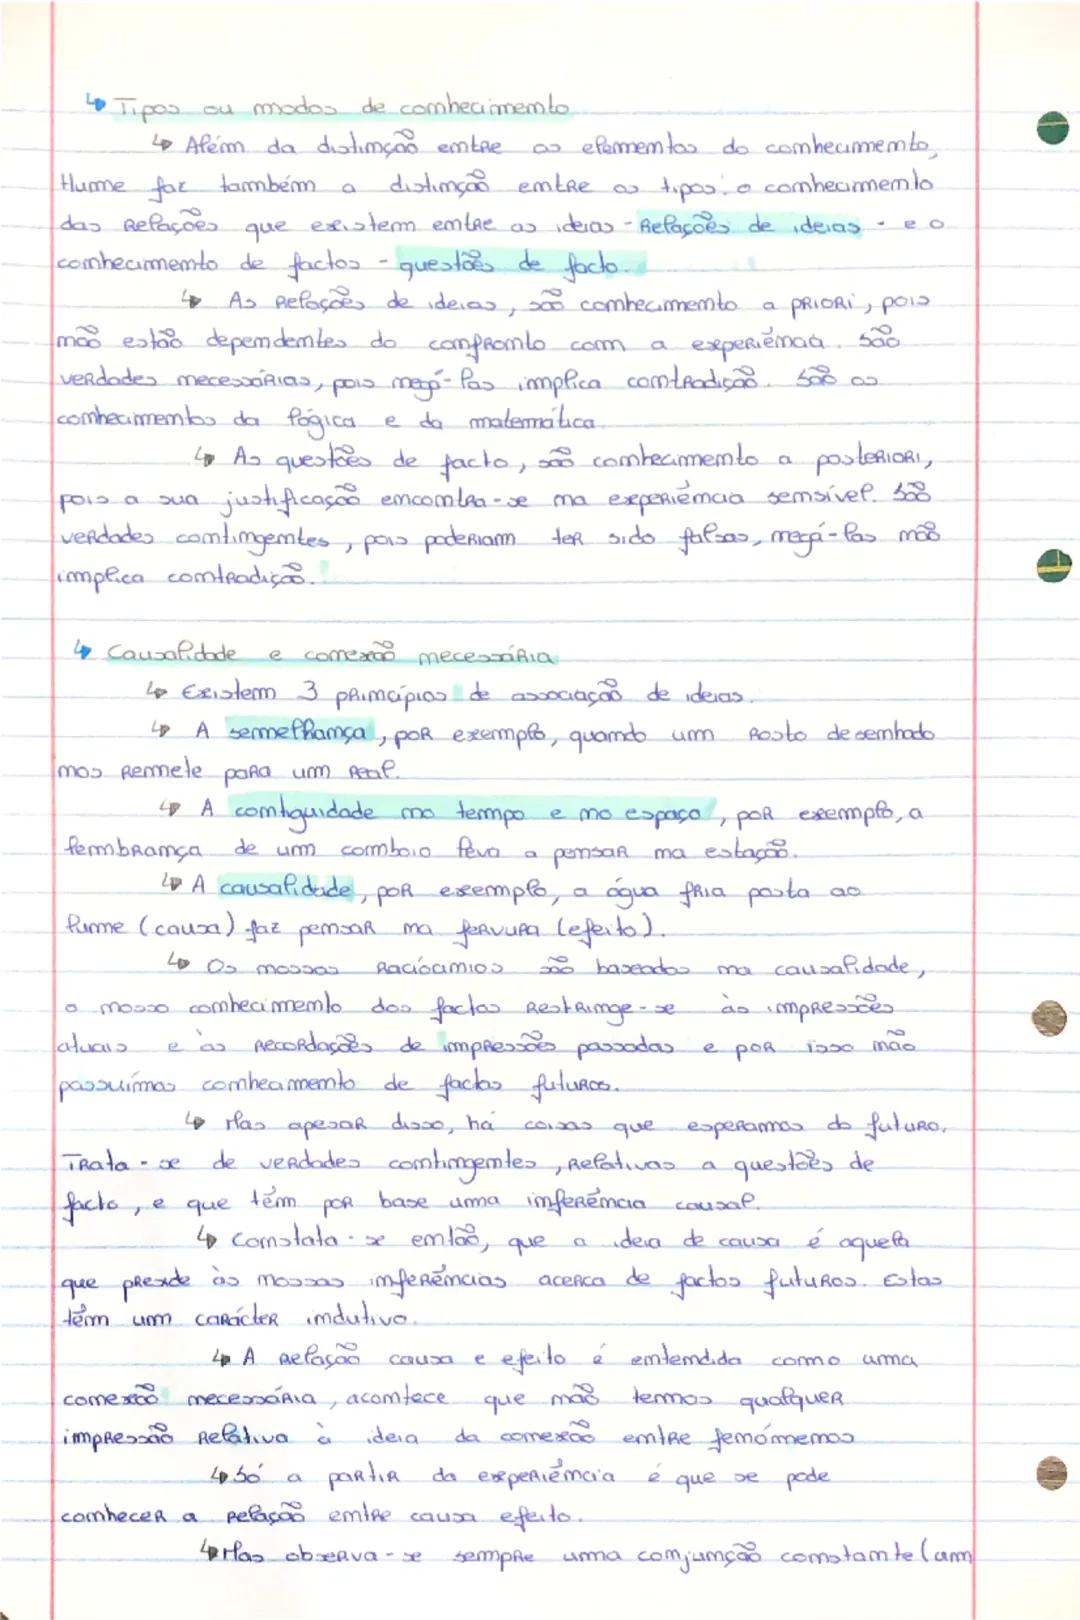 ↳ Tipos ou modos de conhecimento
↳ Além da distinção entre os elementos do conhecimento,
Hume faz também a distinção entre os tipos: o conhecimento
das relações que existem entre as ideias - Relações de ideias - e o
conhecimento de factos - questões de facto.
↳ As relações de ideias, são conhecimento a priori, pois
não estão dependentes do confronto com a experiência. São
verdades necessárias, pois negá-las implica contradição. São os
conhecimentos da lógica e da matemática.
↳ As questões de facto, são conhecimento a posteriori,
pois a sua justificação encontra-se na experiência sensível. São
verdades contingentes, pois poderiam ter sido falsas, negá-las não
implica contradição.
↳ Causalidade e conexão necessária
↳ Existem 3 princípios de associação de ideias.
↳ A semelhança, por exemplo, quando um rosto desenhado
nos remete para um real.
↳ A contiguidade no tempo e no espaço, por exemplo, a
lembrança de um comboio leva a pensar na estação.
↳ A causalidade, por exemplo, a água fria posta ao
lume (causa) faz pensar na fervura (efeito).
↳ Os nossos raciocínios são baseados na causalidade,
o nosso conhecimento dos factos restringe-se às impressões
atuais e às recordações de impressões passadas e por isso não
possuímos conhecimento de factos futuros.
↳ Mas apesar disso, há coisas que esperamos do futuro.
Trata-se de verdades contingentes, relativas a questões de
facto, e que têm por base uma inferência causal.
↳ Constata-se então, que a ideia de causa é aquela
que preside às nossas inferências acerca de factos futuros. Estas
têm um carácter indutivo.
↳ A relação causa e efeito é entendida como uma
conexão necessária, acontece que não temos qualquer
impressão relativa à ideia da conexão entre fenómenos
↳ Só a partir da experiência é que se pode
conhecer a relação entre causa efeito.
↳ Mas observa-se sempre uma conjunção constante (um